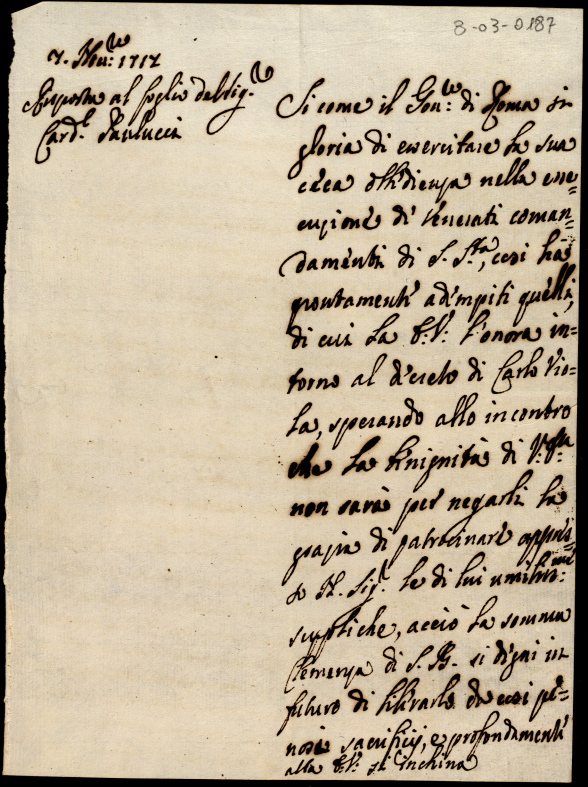 8-03-0187
7. Nov:re 1717
Risposta al foglio del Sig.r
Card.l Paulucci
Si come il Gov:re di Roma si
gloria di esercitare la sua
cieca obbidienza nella esse=
cuzione di venerati coman=
damenti di S. S.tà, cosi ha
prontamente adempiti quelli,
di cui la E:V: l'onora in=
torno al decreto di Carlo Vio=
la, sperando allo incontro
che la benignità di V:
non sarà per negarli la
grazia di patrocinare appres=
so N. Sig.re le di lui umilis:me
suppliche, acciò la somma
Clemenza di S. B. si degni in
futuro di liberarlo da cosi pe=
nosi sacrificij, e profondamente
alla E:V: si inchina